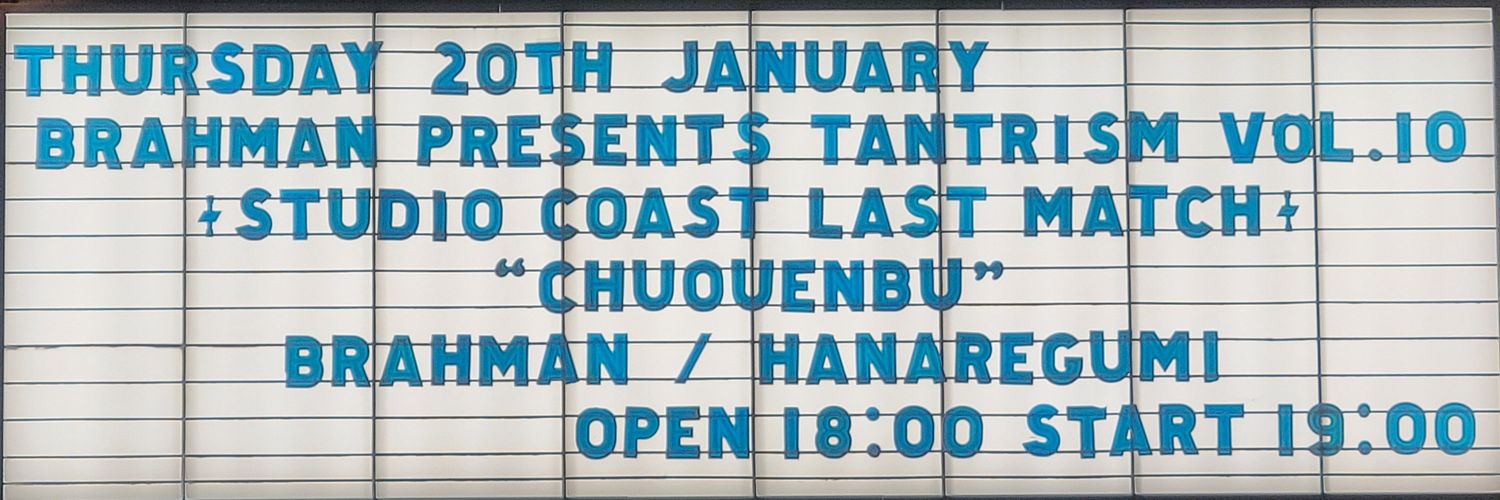 THURSDAY 20TH JANUARY
BRAHMAN PRESENTS TANTRISM VOL.10
STUDIO COAST LAST MATCH
“CHUOUENBU”
BRAHMAN / HANAREGUMI
OPEN 18:00 START 19:00